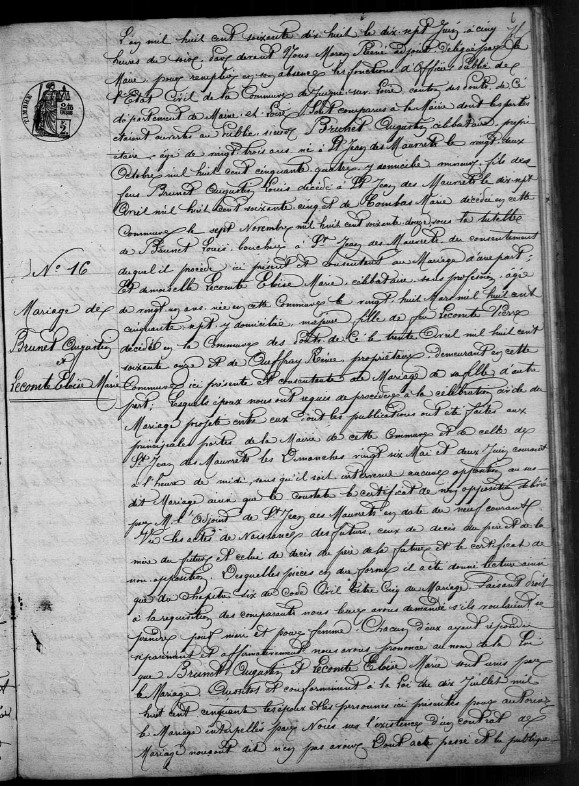 6
L'an mil huit cent soixante dix huit le dix sept Juin à cinq
heures du soir, par devant Nous Moron René adjoint délégué par le
Maire pour remplir en son absence les fonctions d'Officier public de
l'Etat Civil de la Commune de Juigné sur Loire canton des Ponts de Cé
département de Maine et Loire, Sont comparus à la Mairie dont les portes
étaient ouvertes au Public, sieur Brunet Augustin, célibataire, propri
étaire, âgé de vingt trois ans né à St Jean des Mauvrets le vingt deux
Octobre mil huit cent cinquante quatre, y domicilié mineur, fils des
feus Brunet Augustin Louis décédé à St Jean des Mauvrets le dix sept
Avril mil huit cent soixante cinq et de Combas Marie décédée en cette
commune le sept Novembre mil huit cent soixante douze sous la tutelle
de Brunet Louis boucher à St Jean des Mauvrets du consentement
duquel il procède ici présent et consentant au Mariage d'une part;
Et demoiselle Lecomte Eloïse Marie, célibataire, sans profession, âgée
de vingt un ans née en cette Commune le vingt huit Mars mil huit cent
cinquante sept, y domiciliée, majeure, fille de feu Lecomte Pierre
décédé en la Commune des Ponts de Cé le trente Avril mil huit cent
soixante onze et de Reine, propriétaire demeurant en cette
Commune ici présente et consentante au Mariage de sa fille d'autre
part; Lesquels époux nous ont requis de procéder à la célébration civile du
Mariage projeté entre eux dont les publications ont été faites aux
principales portes de la Mairie de cette Commune et de celle de
St Jean des Mauvrets les Dimanches vingt six Mai et deux Juin courant
à l'heure de midi, sans qu'il soit intervenu aucune opposition au sus
dit Mariage ainsi que le constate le certificat de non opposition délivré
par M. l'Adjoint de St Jean des Mauvrets en date du neuf courant
Vu les actes de Naissance des futurs, ceux de décès du père et de la
mère du futur et celui de décès du père de la future et le certificat de
non opposition. Desquelles pièces en due forme il a été donné lecture ainsi
que du chapitre six du Code Civil Titre Cinq du Mariage. Faisant droit
à la réquisition des comparants nous leur avons demandé s'ils voulaient se
prendre pour mari et pour femme Chacun d'eux ayant répondu
séparément et affirmativement nous avons prononcé au nom de la Loi
que Brunet Augustin et Lecomte Eloïse Marie sont unis par
le Mariage et conformément à la Loi du dix Juillet mil
huit cent cinquante les époux et les personnes ici présentes pour autoriser
le Mariage interpellés par Nous sur l'existence d'un contrat de
Mariage nous ont dit n'en pas avoir. Dont acte passé et lu publique
No 16
Mariage de
Brunet Augustin
et
Lecomte Eloïse Marie
TIMBRE